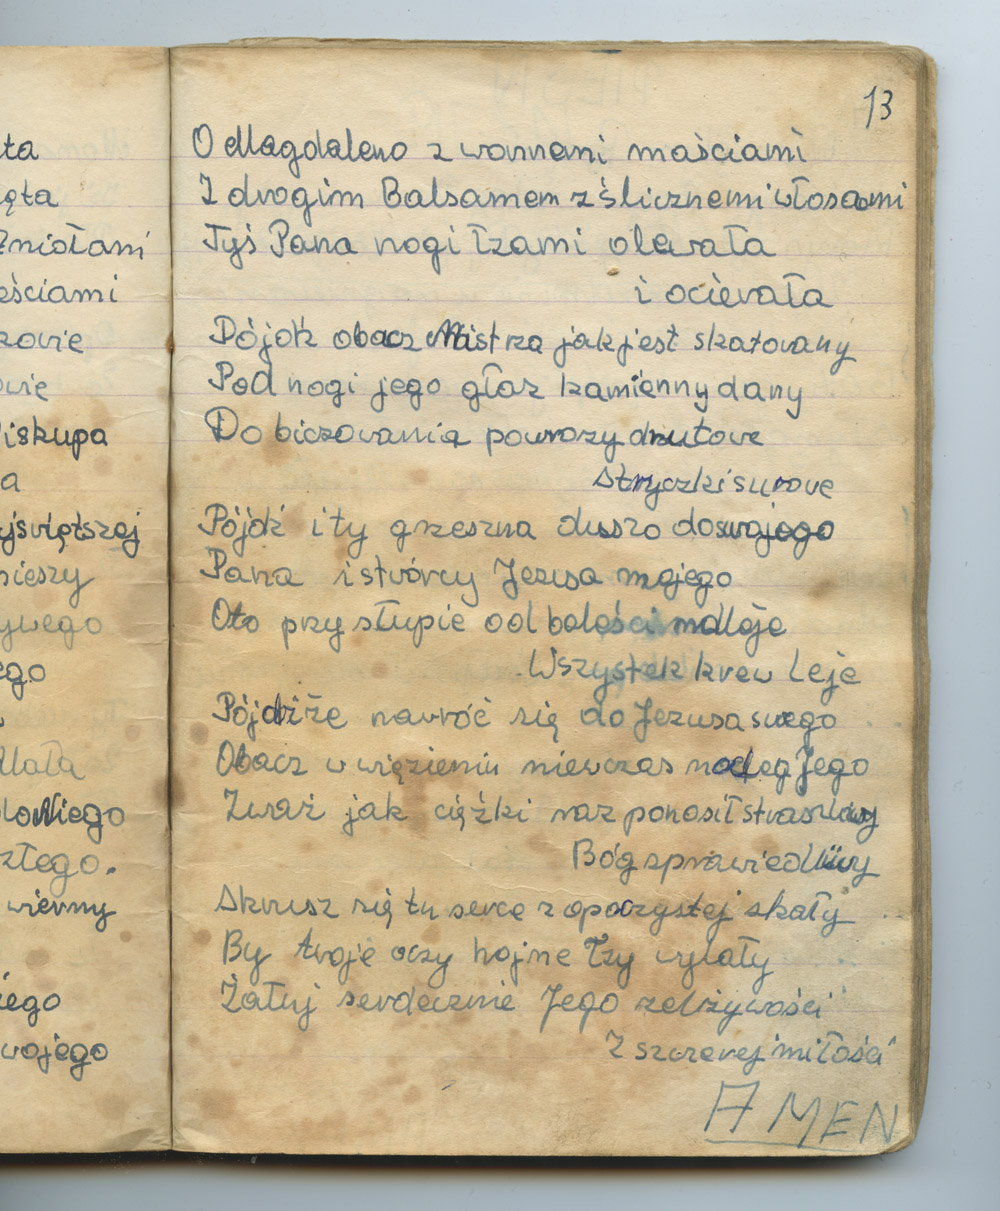 ta
ęta
Zmiołami
eściami
kowie
wie
iskupa
a
jświętszej
pieszy
ywego
ego
dlała
loNiego
złego.
wierny
iego
wojego
13
O Magdaleno z wonnemi maściami
I drogim Balsamem z ślicznemi włosami
Tyś Pana nogi łzami olewała
i ocierała
Pójdź obacz Mistrza jak jest skatowany
Pod nogi jego głaz kamienny dany
Do biczowania powrozy drutowe
Stryczki surowe
Pójdź i ty grzeszna duszo do swojego
Pana i stwórcy Jezusa mojego
Oto przy słupie od boleści mdleje
Wszystek krew Leje
Pójdźże nawróć się do Jezusa swego
Obacz w więzieniu niewczas nocleg Jego
Zważ jak ciężki raz ponosił straszliwy
Bóg sprawiedliwy
Skrusz się tu serce z opoczystej skały
By twoje oczy hojne łzy wylały
Żałuj serdecznie Jego zelżywości
Z szczerej miłości
AMEN